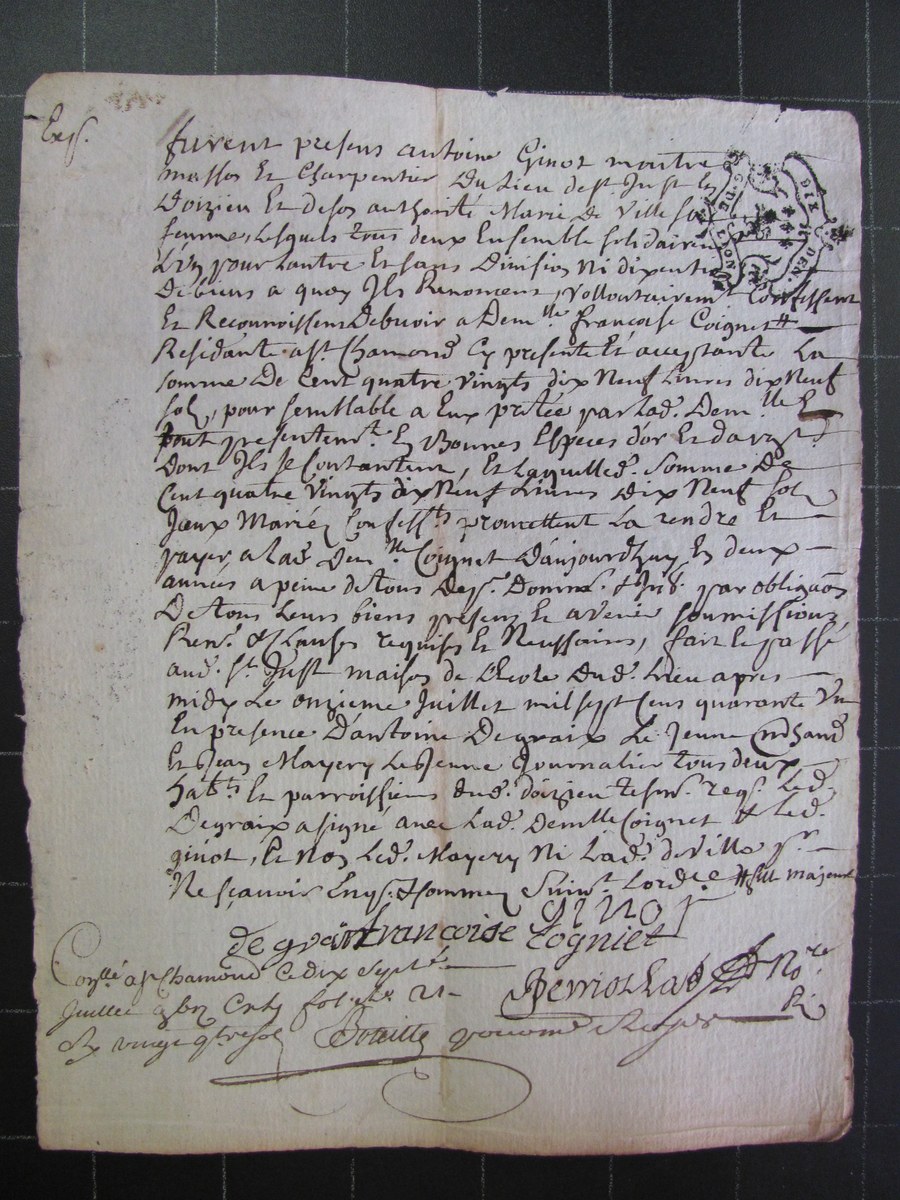 Exp.
furent presens antoine Ginot maitre
masson Et Charpentier Du Lieu de st. Just les
Doizieu Et de son authorité Marie De Ville sa
femme, Lesquels tous deux Ensemble solidairem
L'un pour Lautre Et sans Division Ni
De biens a quoy Ils Renoncent, vollontairemt. Confessent
Et Reconnoissent Debvoir a Demlle. francoise Coignet #
Residante a st. Chamond Cy presente Et acceptante La
somme De Cent quatre vingts dix Neuf Livres dix Neuf
sols, pour semblable a Eux prêtée par Lad. Demlle. E
tout presentemt. En Bonnes Especes d'or Et d'argt.
Dont Ils se Contantent, Et Laquelled. somme De
Cent quatre vingts dix Neuf Livres Dix Neuf sols
Iceux Mariés Confessts. promettent La rendre Et
payer a Lad. Demlle. Coignet D'aujourd'huy En deux
années a peine de tous Desp. Domm. & Int. par obligaon
De tous Leurs biens presens Et avenir soumissions
Renon. & Clauses requises Et Necessaires, fait Et passé
aud. st. Just maison de Dud. Lieu apres
midy Le onzieme Juillet mil sept Cens quarante Un
En presence D'antoine Degraix Le Jeune
Et Jean Mayery Le Jeune Journalier tous deux
habts. Et parroissiens dud. doizieu tesm. reqs. Led.
Degraix a signé avec Lad. demlle Coignet & Led.
ginot, Et Non Led. Mayery Ni Lad. deVille pr.
Ne sçavoir Enqs. & sommez Suivt. Lordce. # fille majeure
de graix francoise cogniet Ginot
Conllé a st Chamond Ce dix sept
Juillet 21
Rx vingt qtre sol
Nore